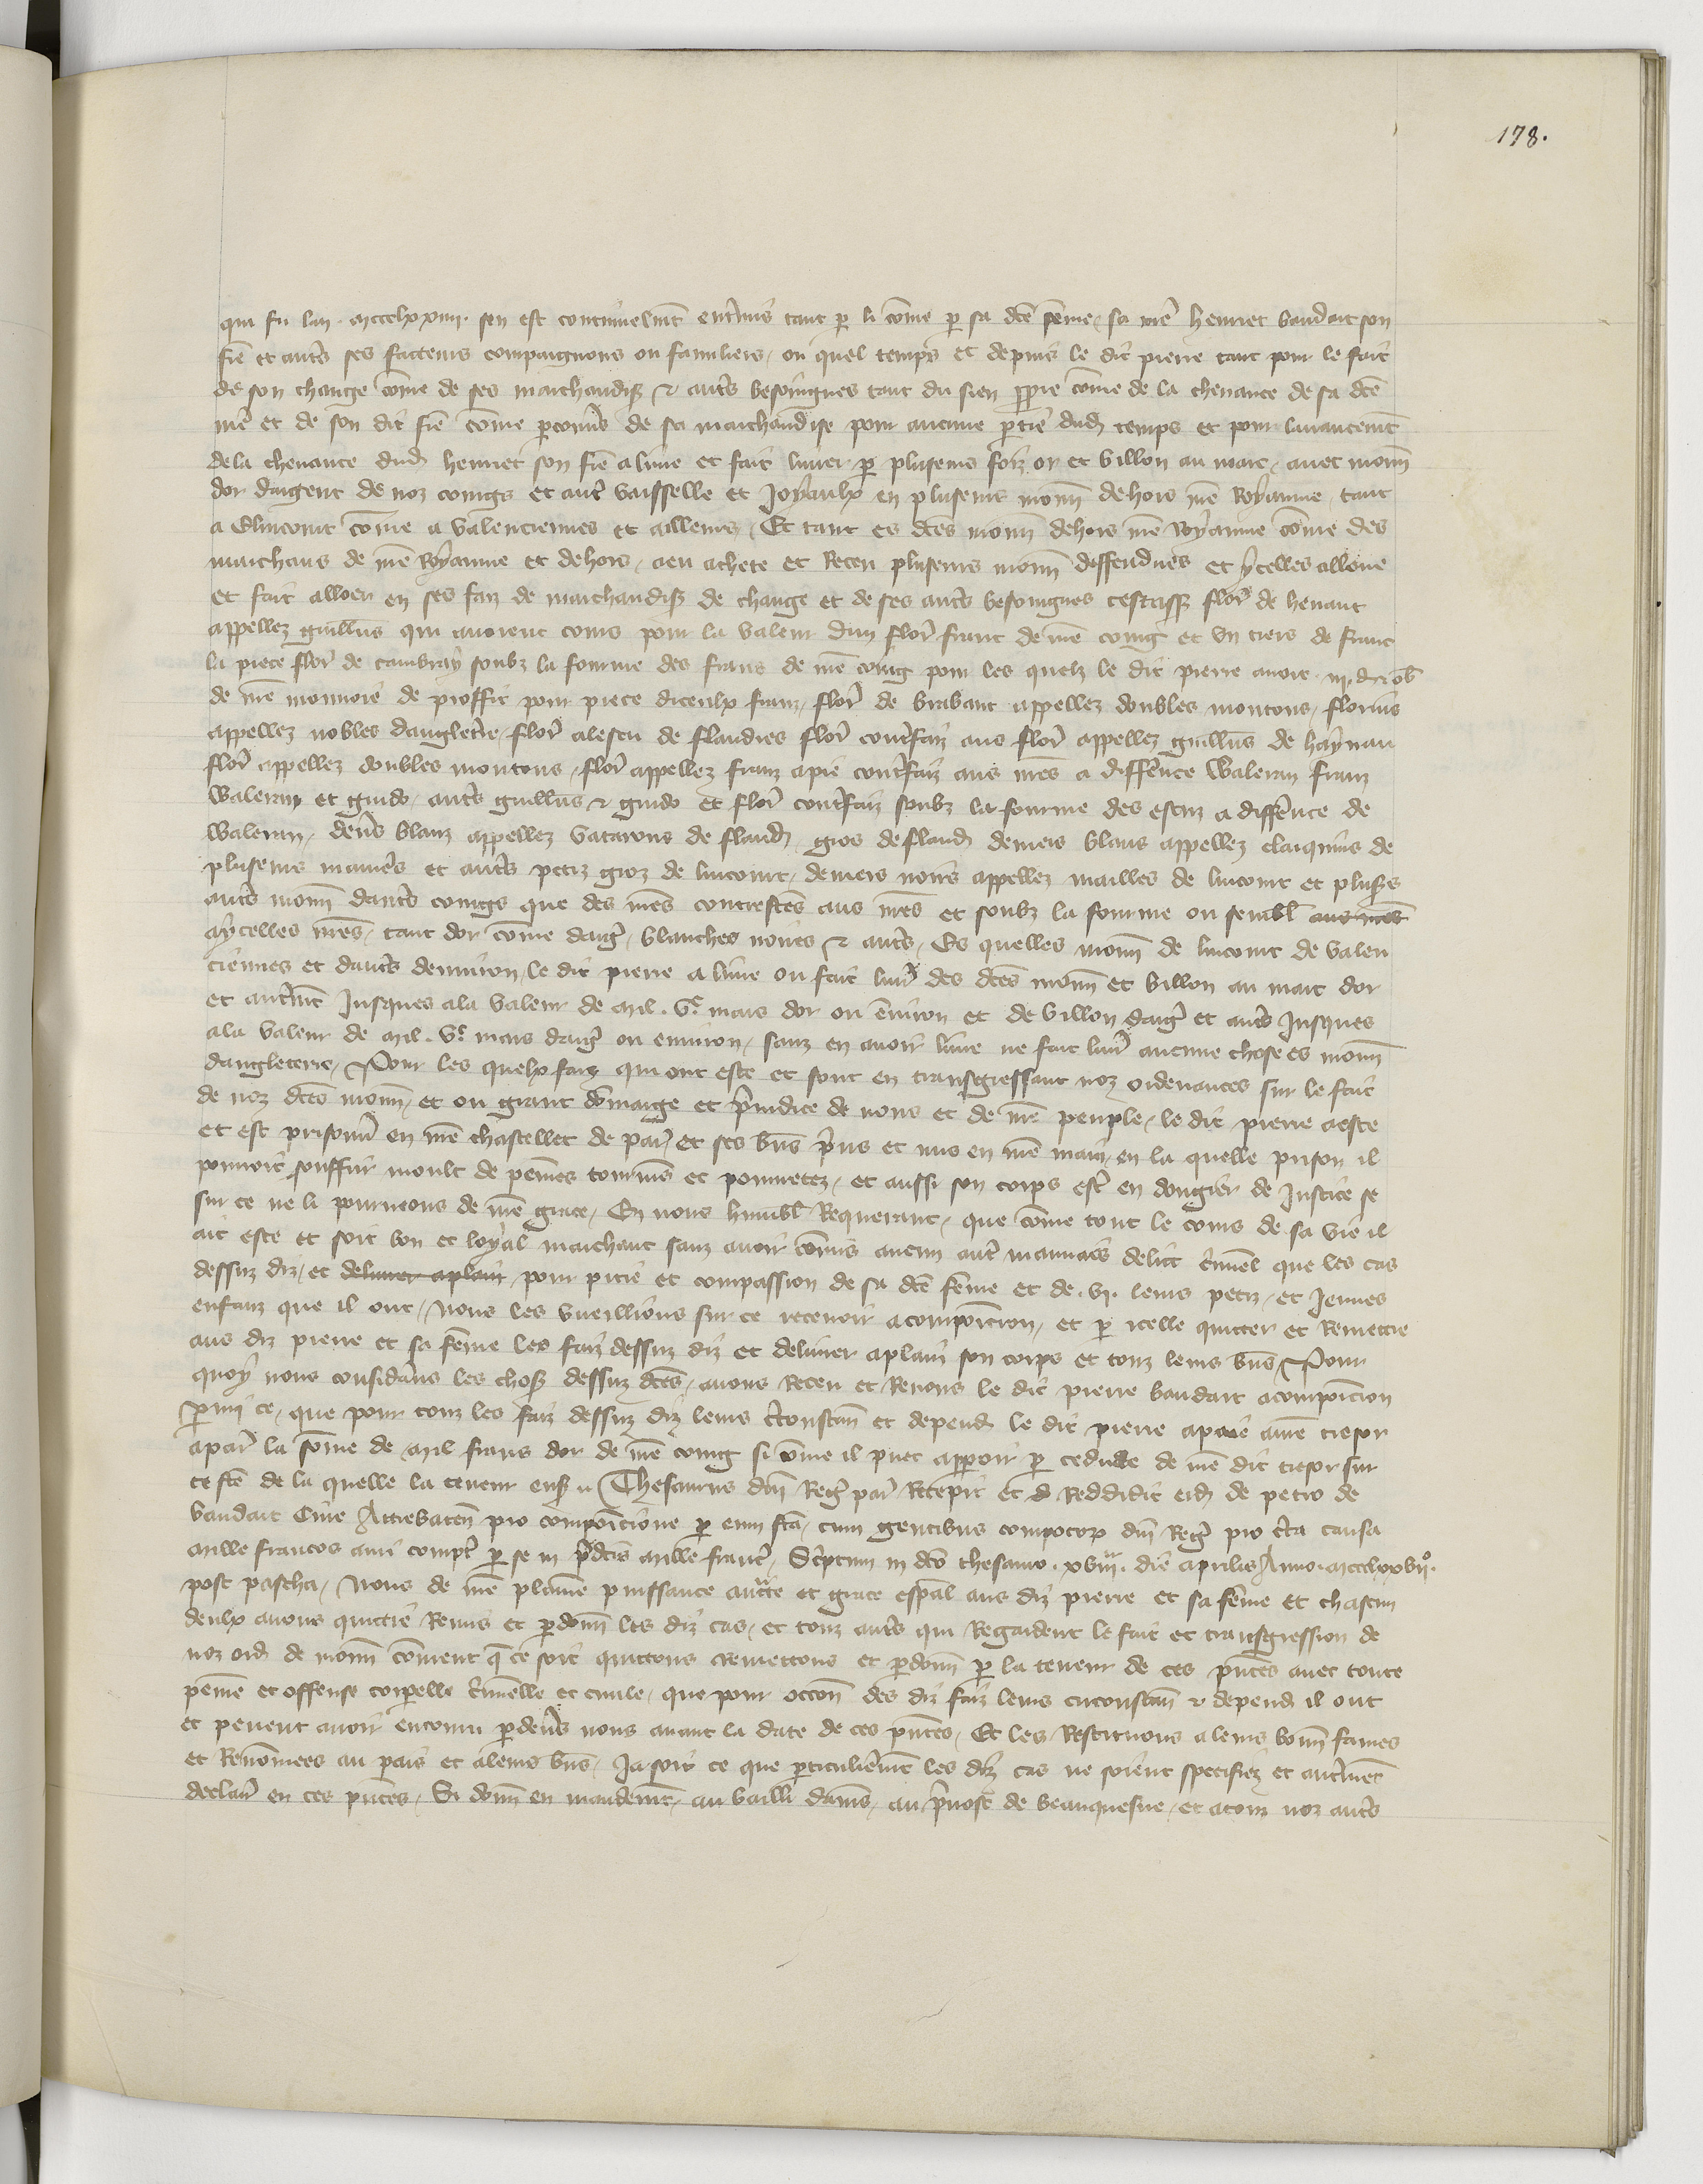 178.
qui fu lan mccclxxiiii sen est continuelmt entremis tant p li cõme p sa dce feme sa mere henriet baudart son
fre et autres ses facteurs compaignons ou familiers ou quel temps et depuis le dit pierre tant pour le fait
de son change cõme de ses marchandises et autres besoingnes tant du sien propre cõme de la chevance de sa dce
mere et de son dit fre cõme de sa marchandise pour aucune ptie dud temps et pour lavancemt
de la chevance dud henriet son fre a livre et fait livrer p pluseurs foiz or et billon au marc avec monn
dor dargent de noz coings et autre vaisselle et joyaulx en pluseurs monn dehors nre Royaume tant
a Elincourt cõme a valenciennes et ailleurs Et tant es dces monn dehors nre Royaume cõme des
marchans de nre Royaume et dehors a eu achete et Receu pluseurs monn deffendues et ycelles alloue
et fait allouer en ses faiz de marchandises de change et de ses autres besoingnes cestass flor de henaut
appellez guillus qui avoient cours pour la valeur dun flor franc de nre coing et un tiers de franc
la piece flor de cambray soubz la fourme des frans de nre coing pour les quelz le dit pierre avoit iii d ob
de nre monnoie de proffit pour piece diceulx franz flor de brabant appellez doubles moutons florins
appellez nobles dangleterre flor alescu de flandres flor contrefaiz aus flor appellez guillus de haynau
flor appellez doubles moutons flor appellez franz a pie contrefaiz aus nres a difference Waleran franz
Waleran et guido autres guillus et guido et flor contrefaiz soubz la fourme des escuz a difference de
Waleran deners blanz appellez vatarons de fland gros de fland deniers blans appellez clarquins de
pluseurs manieres et autres petiz groz de lincourt deniers noirs appellez mailles de lincourt et pluss
autres monn dautres coings que des nres contrefces aus nres et soubz la fourme ou sembl aus nres
a ycelles nres tant dor cõme darg blanches noires et autres Es quelles monn de lincourt de valen
ciennes et dautres denviron le dit pierre a livre ou fait livr des dces monn et billon au marc dor
et autremt Jusques ala valeur de mil vc mars dor ou environ et de billon darg et autres Jusques
ala valeur de mil vc mars darg ou environ sanz en avoir livre ne fait livr aucune chose es monn
dangleterre Pour les quelx faiz qui ont este et sont en transgressant noz ordenances sur le fait
de noz dces monn et ou grant dõmaige et preiudice de nous et de nre peuple le dit pierre a este
et est prisonn en nre chastellet de par et ses bns prins et mis en nre main en la quelle prison il
pourroit souffrir moult de peines tourmes et pouvretez et aussi son corps estre en dongier de Justice se
sur ce ne li pourveons de nre grace En nous humbl Requerant que cõme tout le cours de sa vie il
ait este et soit bon et loyal marchant sanz avoir cõmis aucun autre mauvais delict criminel que les cas
dessuz diz et delivrer aplain pour pitie et compassion de sa dce feme et de vi leurs petiz et Jeunes
enfanz que il ont Nous les vueillions sur ce recevoir a composicion et p icelle quitter et Remettre
aus diz pierre et sa feme les faiz dessuz diz et delivrer aplain son corps et touz leurs bns Pour
quoy nous considerans les choses dessuz dces avons Receu et Recevons le dit pierre baudart a composicion
parmi ce que pour touz les faiz dessuz diz leurs circonstan et depend le dit pierre a paie a nre tresor
a par la sõme de mil frans dor de nre coing si cõme il puet apparoir p cedule de nre dit tresor sur
ce fce de la quelle la teneur ens Thesaurus dni Reg par Recepit et Reddidit eid de petro de
baudart Cive Attrebaten pro composicione p eum fca cum gentibus compotor dni Reg pro certa causa
mille francos auri compt p se in pdcis mille franc Scriptum in dco thesauro xviii die aprilis Anno mccclxxvii
post pascha Nous de nre plaine puissance auctte et grace espal aus diz pierre et sa feme et chascun
deulx avons quictie Remis et pdonn les diz cas et touz autres qui Regardent le fait et transgression de
noz ord de monn cõment q ce soit quittons remettons et pdonn p la teneur de ces pntes avec toute
peine et offense corpelle criminelle et civile que pour occon des diz faiz leurs circonstan et depend il ont
et peuent avoir encouru pdevers nous avant la date de ces pntes Et les Restituons a leurs bonn fames
et Renõmees au pais et a leurs bns Ja soit ce que pticulierement les diz cas ne soient specifiez et autremet
declair en ces pntes Si donn en mandemt au bailli damis au prevost de beauquesne et a touz noz autres